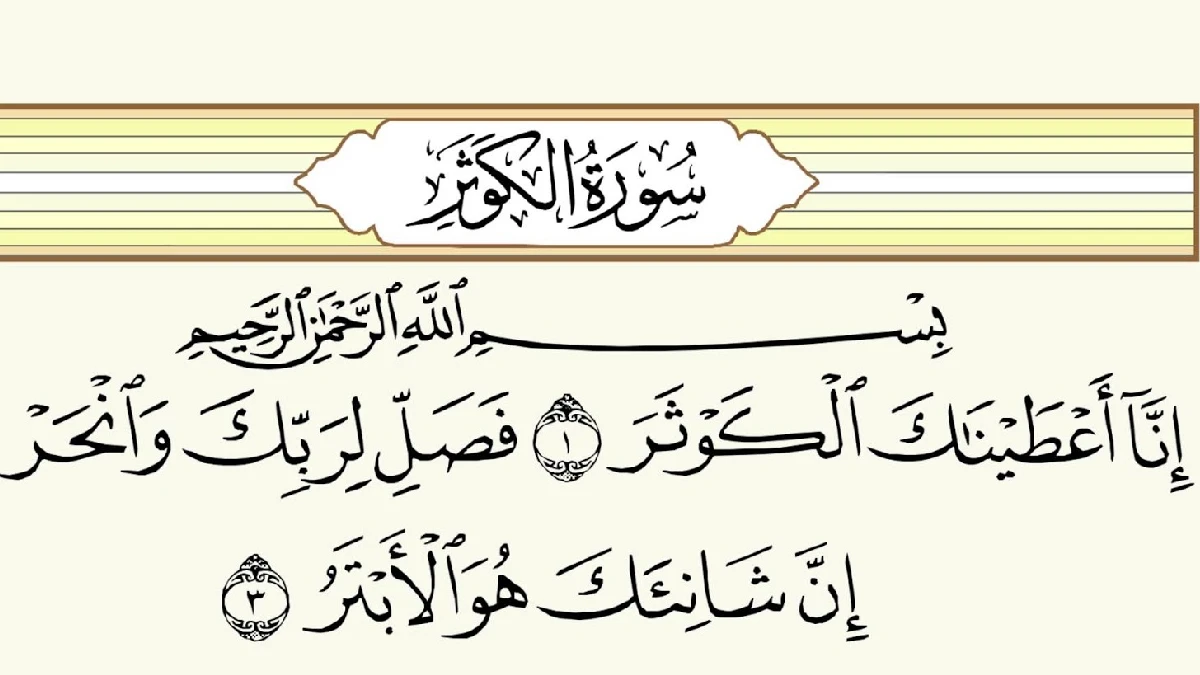 سُورَةُ الكَوۡثَرِ
بِسۡمِ ٱللَّهِ ٱلرَّحۡمَٰنِ ٱلرَّحِيمِ
إِنَّآ أَعۡطَيۡنَٰكَ ٱلۡكَوۡثَرَ ١ فَصَلِّ لِرَبِّكَ وَٱنۡحَرۡ
إِنَّ شَانِئَكَ هُوَ ٱلۡأَبۡتَرُ ٣